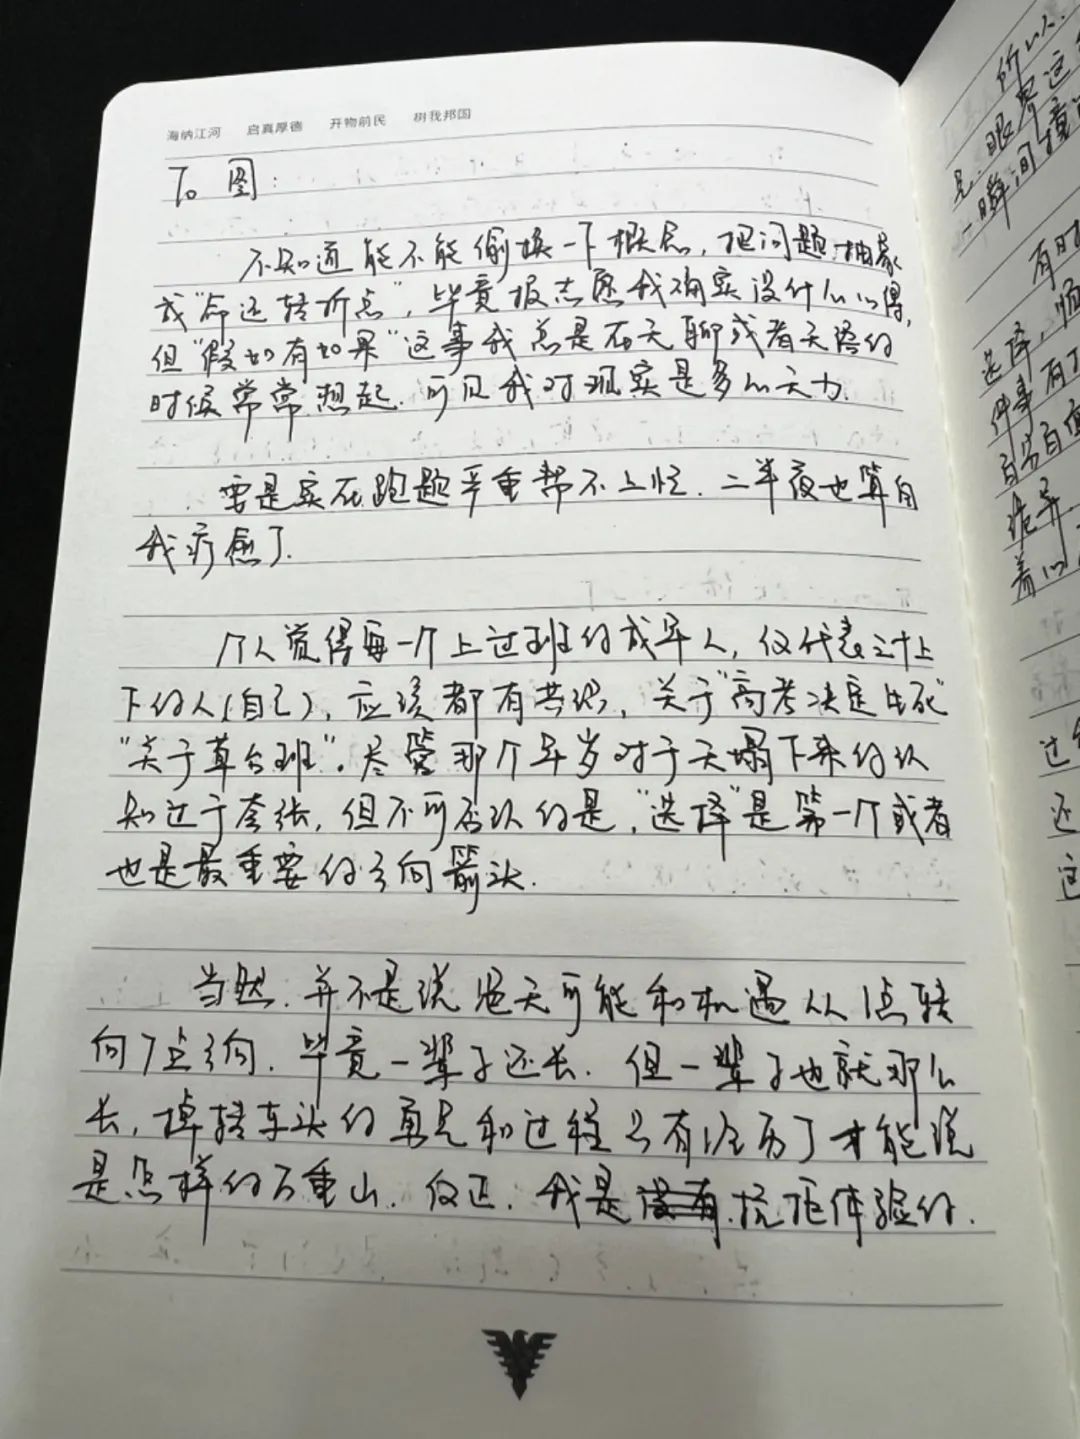 海纳江河 启真厚德 开物前民 树我邦国
To 图:
不知道能不能偷换一下概念,把问题抽象
成“命运转折点”,毕竟报志愿我确实没什么心得,
但“假如有如果”这事我总是在无聊或者无语的
时候常常想起.可见我对现实是多么无力.
要是实在跑题严重帮不上忙.二半夜也算自
我疗愈了.
个人觉得每一个上过班的成年人,仅代表
下的人(自己),应该都有共识,关于“高考决定生死”
“关于草台班”.尽管那个年岁对于天塌下来的认
知过于夸张,但不可否认的是,“选择”是第一个或者
也是最重要的方向箭头.
当然.并不是说绝无可能和机遇从1点转
向7点方向.毕竟一辈子还长.但一辈子也就那么
长,掉转车头的勇气和过程只有经历了才能说
是怎样的万重山.反正.我是抗拒体验的.
所以
是眼界这
一瞬间
有时
选择,
件事有
自
诡异
着
过
还
这